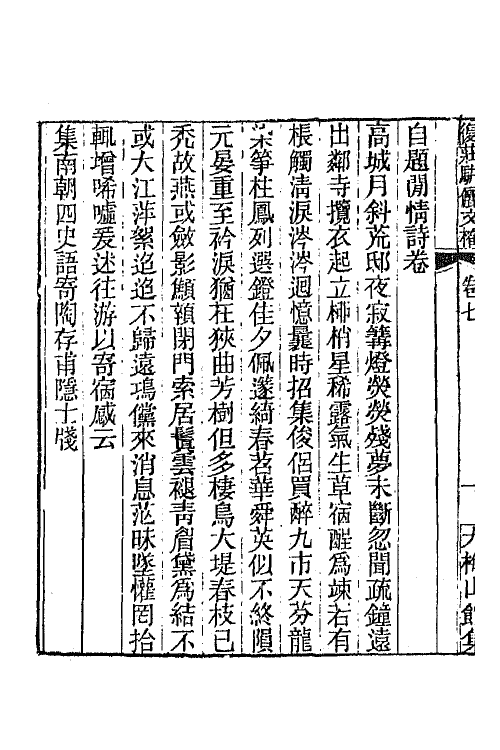 復莊駢儷文榷
卷七
一
大梅山館集
自題閒情詩卷
高城月斜荒邸夜寂篝燈熒熒殘夢未斷忽聞疏鐘遠
出鄰寺攬衣起立梆梢星稀露氣生草宿酲為竦若有
棖觸淸淚涔涔迴憶曩時招集俊侶買醉九市天芬龍
菜箏柱鳳列選鐙佳夕佩邃綺春茗華舜英似不終隕
元晏重至衿淚猶在狹曲芳樹但多棲鳥大堤春枝已
禿故燕或斂影顑顉閉門索居鬢雲褪靑眉黛為結不
或大江萍絮迢迢不歸遠鴻儻來消息茫昧墜懽罔拾
輒增唏噓爰述往游以寄宿感云
集南朝四史語寄陶存甫隱士牋